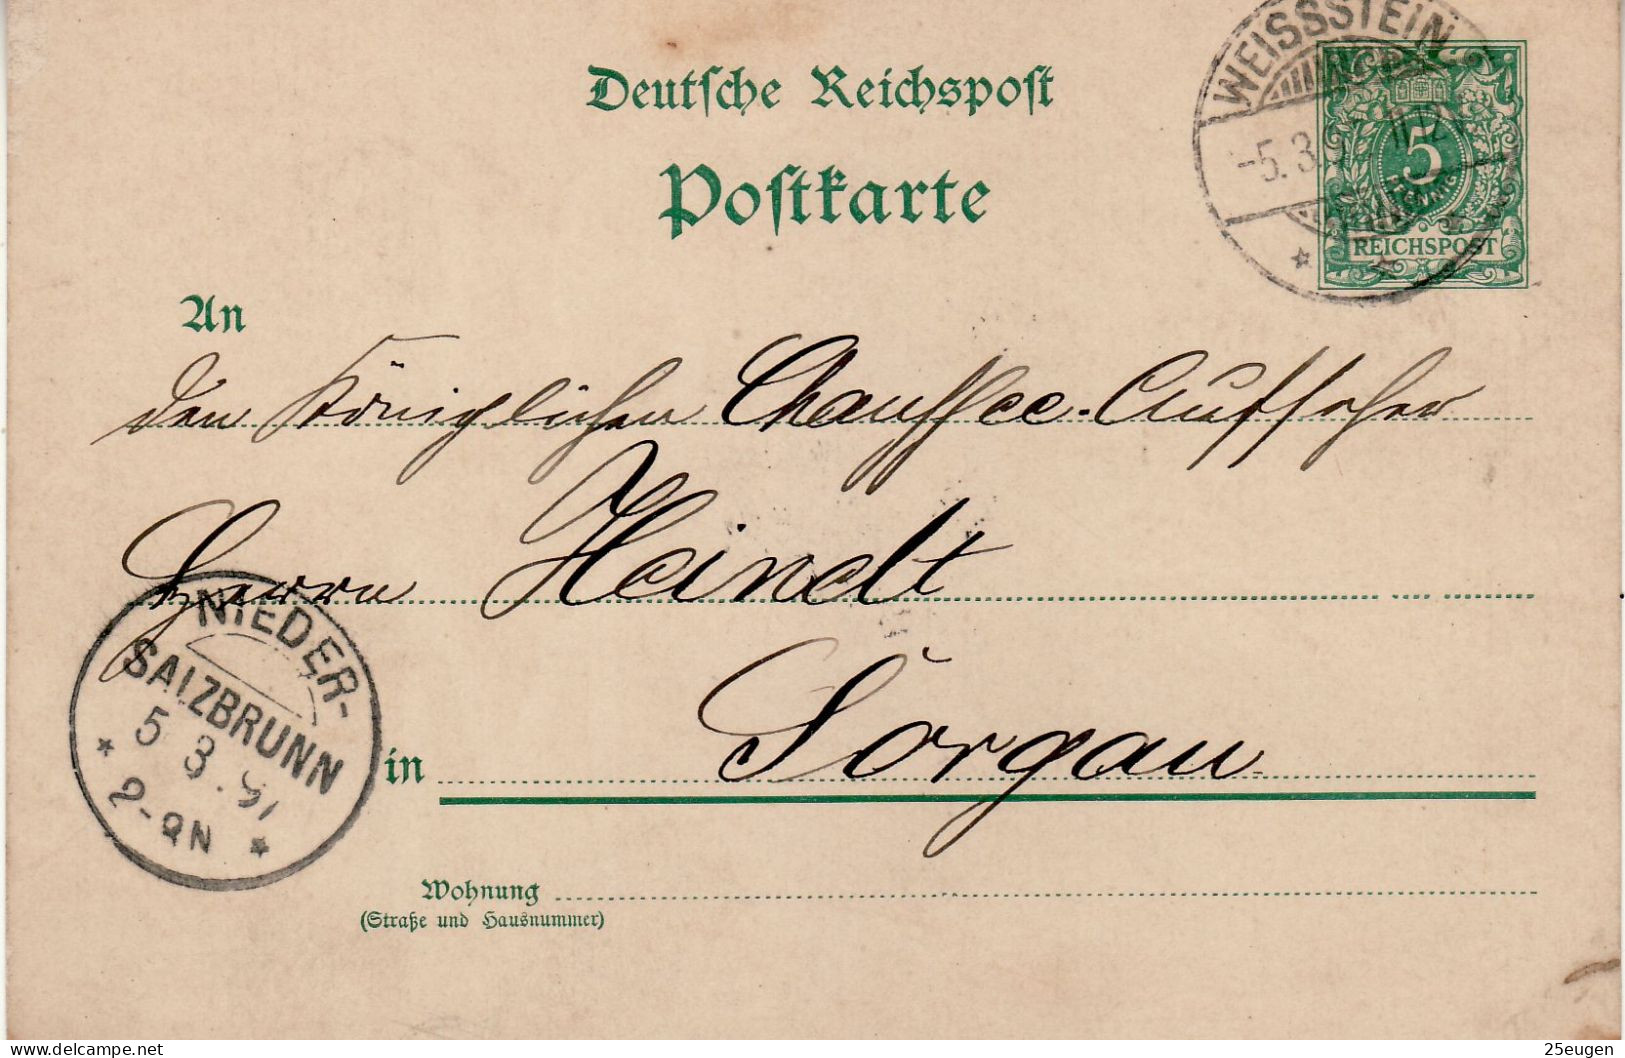 Deutsche Reichspost
Postkarte
WEISSSTEIN
-5. 3.
5
REICHSPOST
An
den Königlichen Chaussee-Aufseher
Herrn Heindt
in Sorgau
NIEDER-
SALZBRUNN
5 3. 97
2-
N
Wohnung
(Straße und Hausnummer)
delcampe.net
25eugen